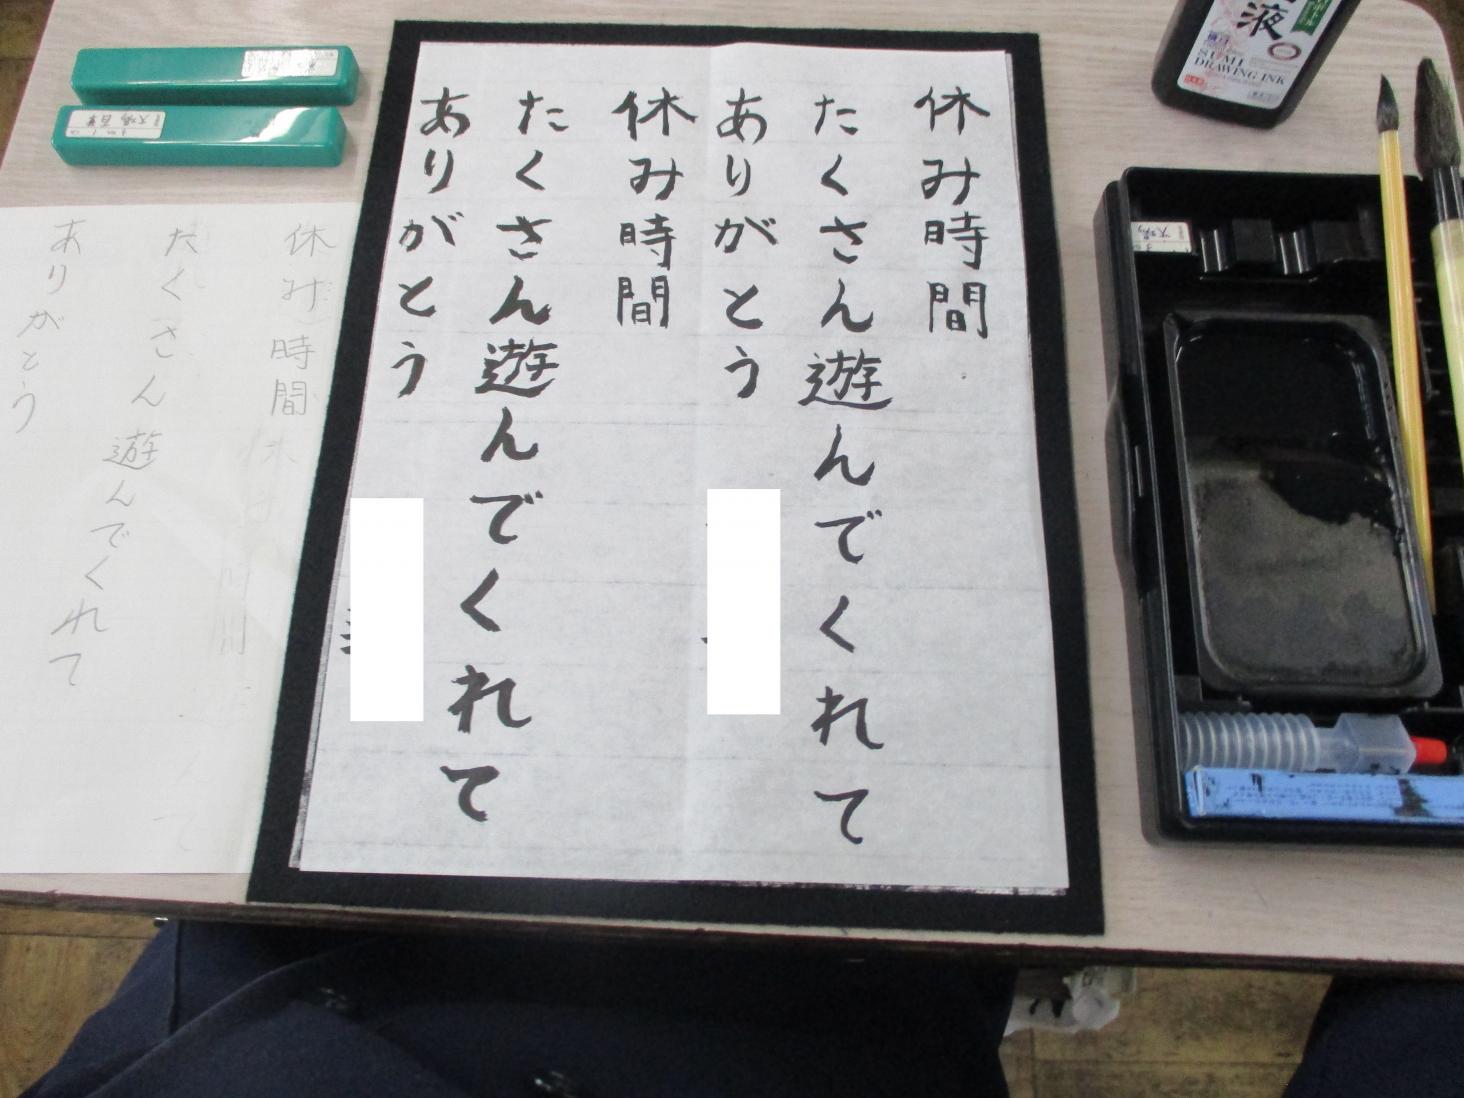 休み時間
たくさん遊んでくれて
ありがとう
休み時間
たくさん遊んでくれて
ありがとう
休み時間
たくさん遊んでくれて
ありがとう
液
SUMI
DRAWING INK